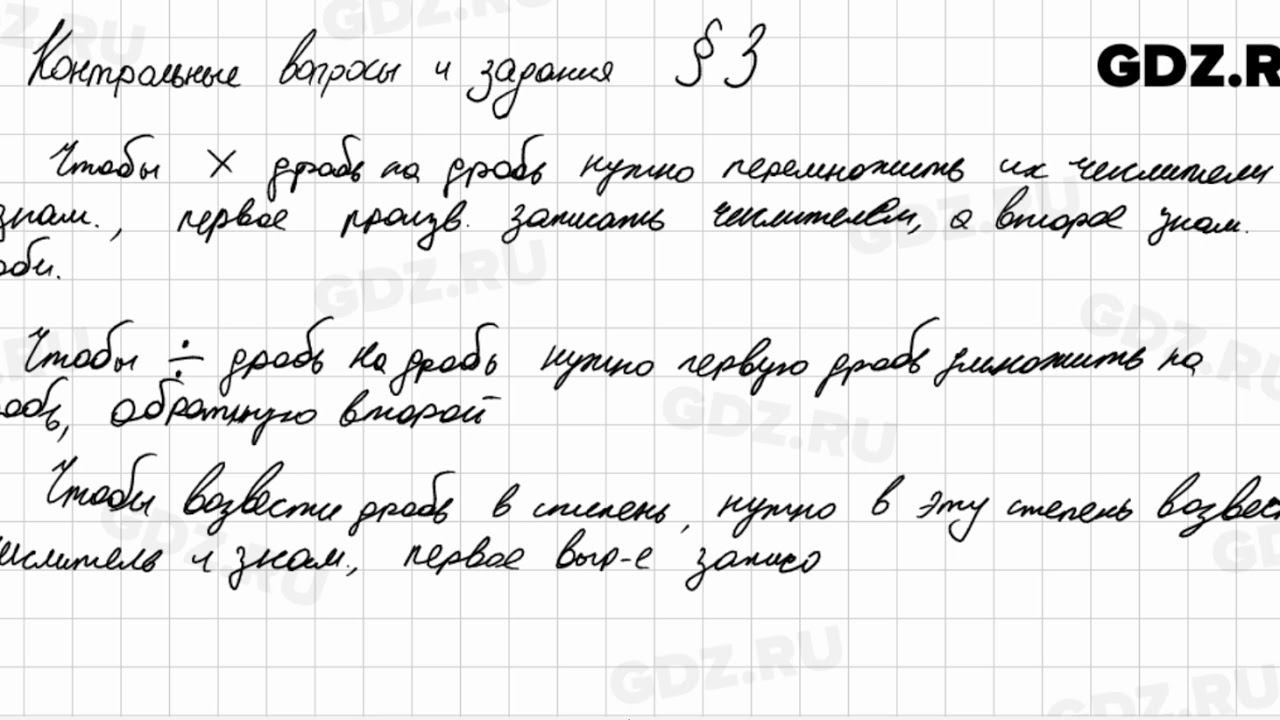 Контрольные вопросы и задания § 3
GDZ.R
Чтобы × дробь на дробь нужно перемножить их числители
знам., первое произв. записать числителем, а второе знам.
оби.
Чтобы ÷ дробь на дробь нужно первую дробь умножить на
робь, обратную второй
Чтобы возвести дробь в степень, нужно в эту степень возвес
числитель и знам., первое выр-е записа
GDZ.RU
GDZ.RU
GDZ.RU
GDZ.RU
GDZ.RU
GDZ.RU
GDZ.RU